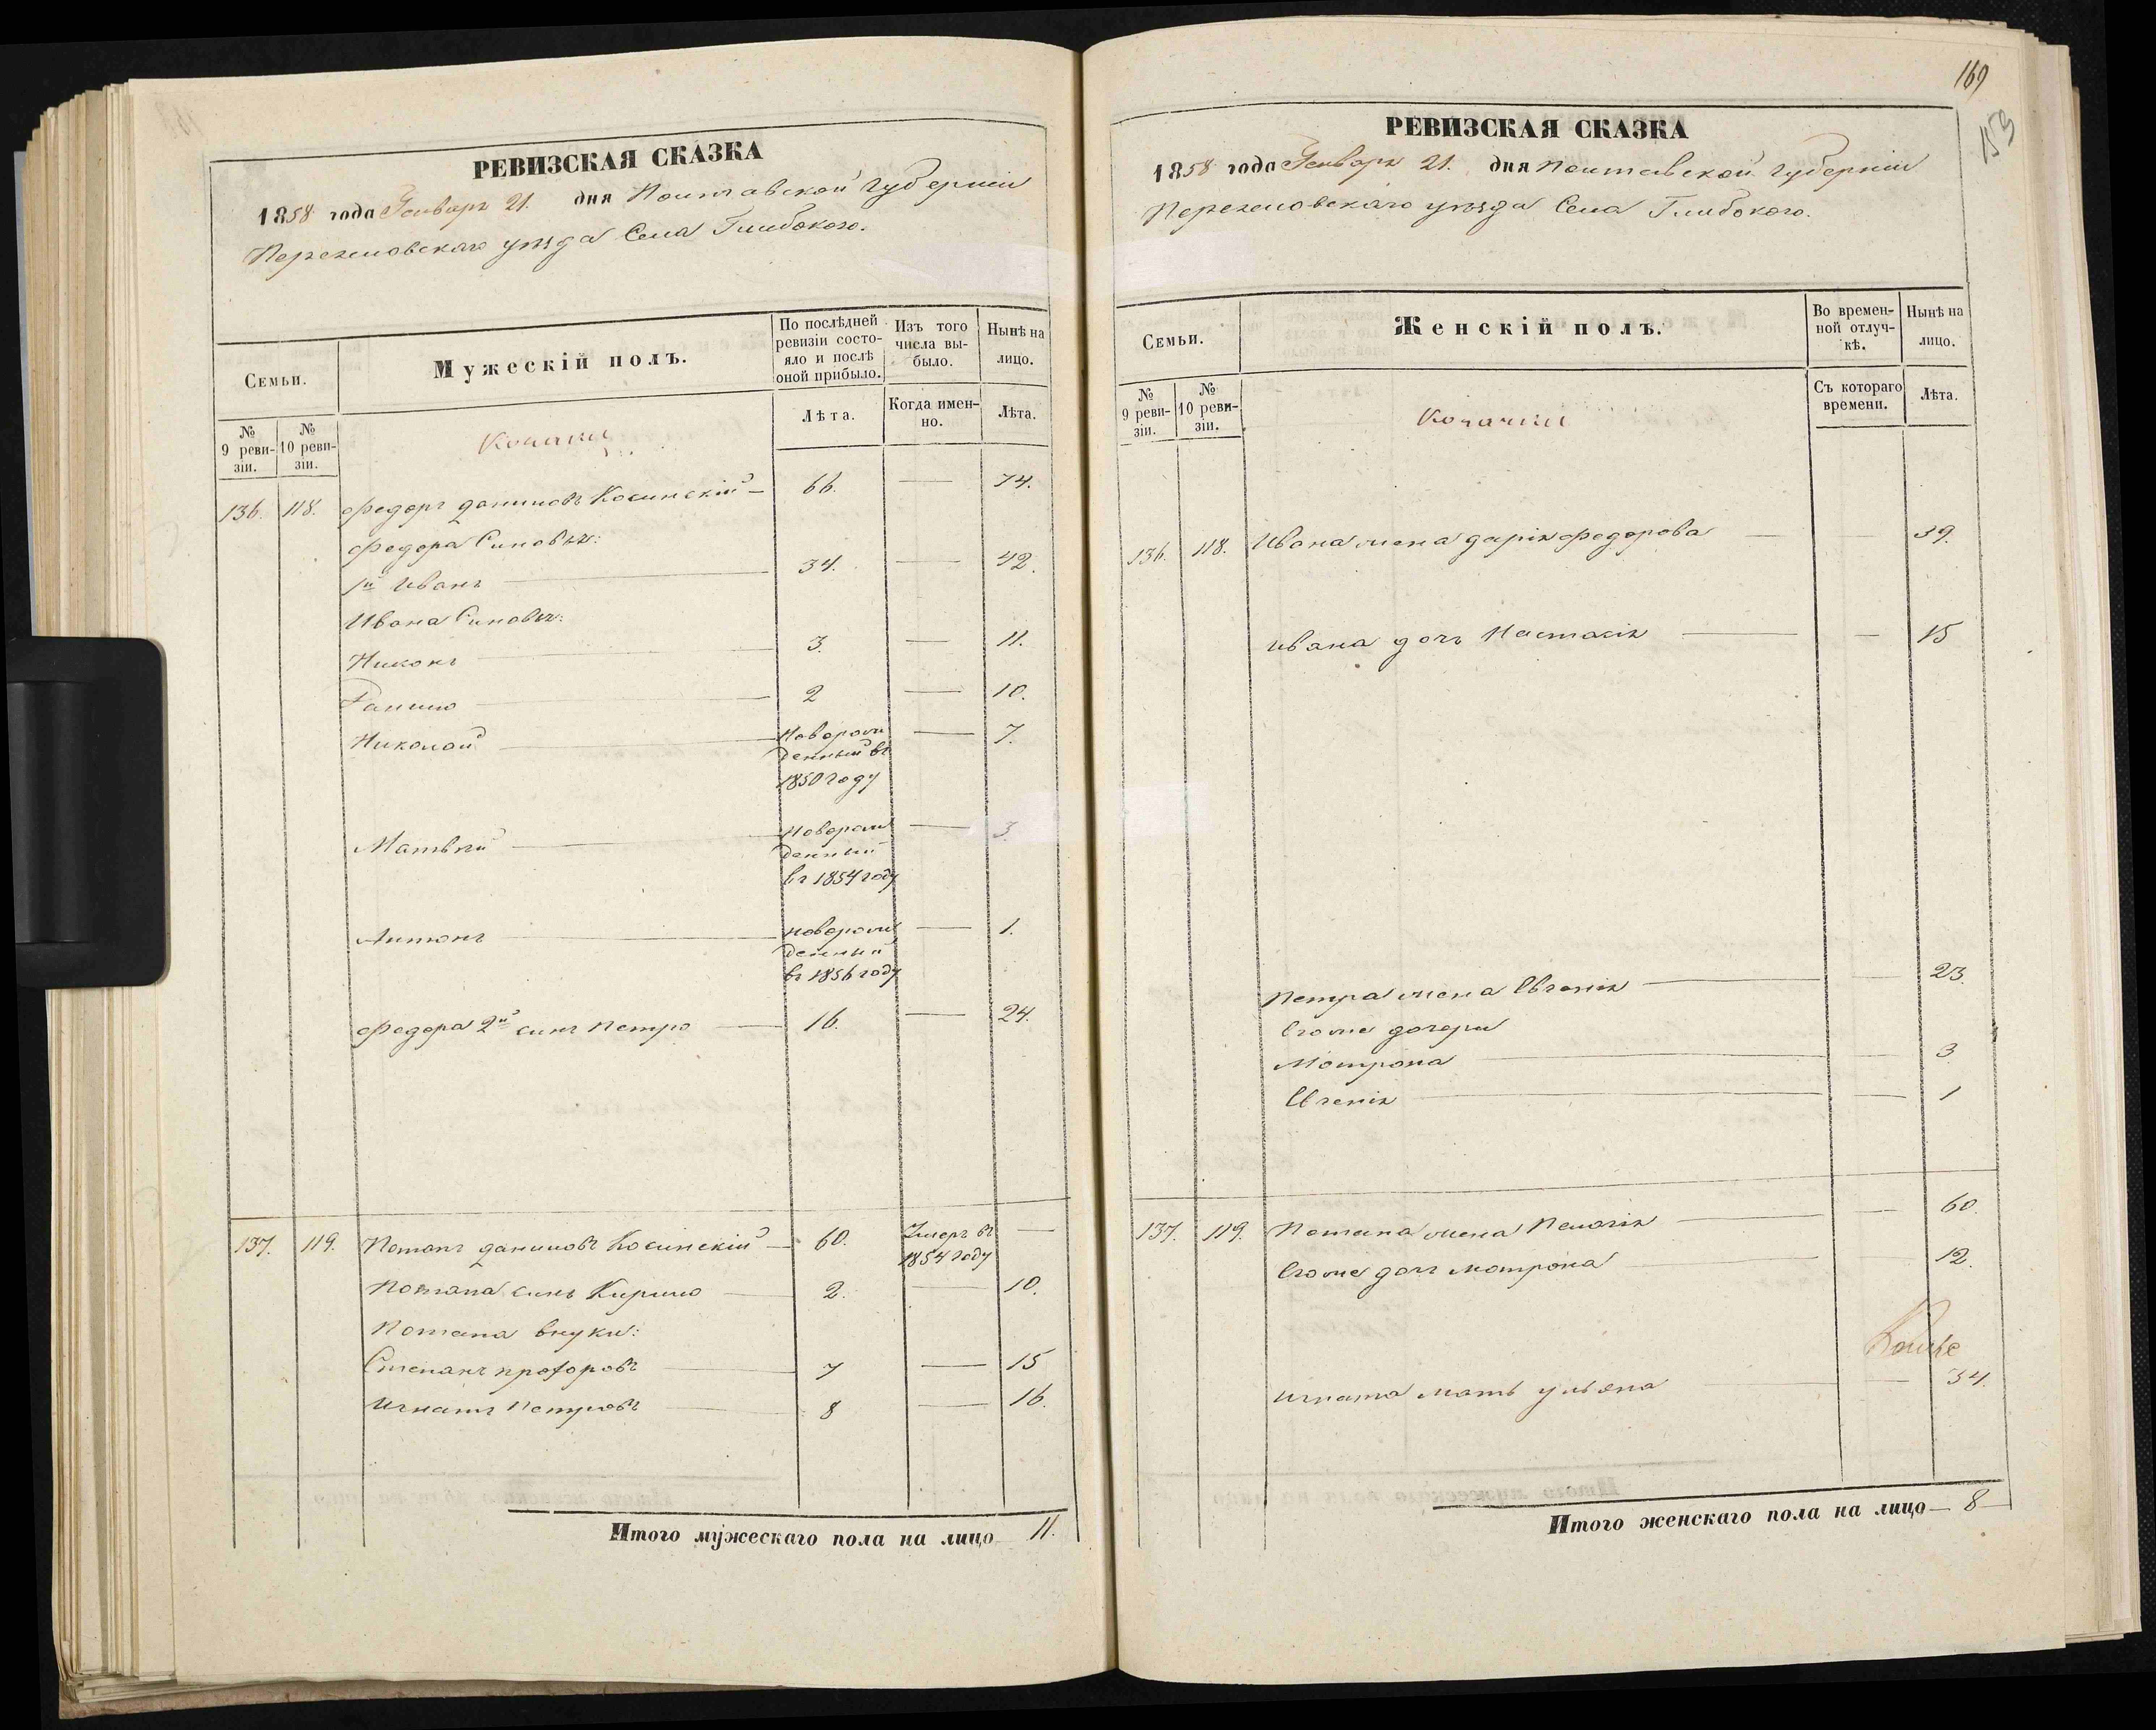 РЕВИЗСКАЯ СКАЗКА
1858 года Генваря 21. дня Полтавской губерніи
Переяловскаго уѣзда Села Глибокого.
Семьи.
Мужескій полъ.
По послѣдней ревизіи состояло и послѣ оной прибыло.
Изъ того числа выбыло.
Нынѣ на лицо.
№ 9 ревизіи.
№ 10 ревизіи.
Козаки
Лѣта.
Когда именно.
Лѣта.
136. 118. Федоръ даниловъ Косинскій — 66. — 74.
Федора Синовья:
1й Иванъ — 34. — 42.
Ивана Синовья:
Никонъ — 3. — 11.
Данило — 2 — 10.
Николай — Новорожденный въ 1850 году — 7.
Матвѣй — Новорожденный въ 1854 году — 3
Антонъ — новорожденный въ 1856 году — 1.
Федора 2й синъ Петро — 16. — 24.
137. 119. Потапъ даниловъ Косинскій — 60. Умеръ въ 1854 году —
Потапа синъ Кирило — 2. — 10.
Потапа внуки:
Степанъ прохоровъ — 7 — 15
Игнатъ Петровъ — 8 — 16.
Итого мужескаго пола на лицо 11.
169
153
РЕВИЗСКАЯ СКАЗКА
1858 года Генваря 21. дня Полтавской губерніи
Переяловскаго уѣзда Села Глибокого.
Семьи.
Женскій полъ.
Во временной отлучкѣ.
Нынѣ на лицо.
№ 9 ревизіи.
№ 10 ревизіи.
Козачки
Съ котораго времени.
Лѣта.
136. 118. Ивана жена дарія федорова — — 39.
ивана дочь Настасія — — 15
Петра жена Евгенія — — 23.
Егоже дочери
Мотрона — — 3
Евгенія — — 1
137. 119. Потапа жена Пелагія — — 60.
Егоже дочь мотрона — — 12.
игната мать ульяна — — 34.
Итого женскаго пола на лицо — 8